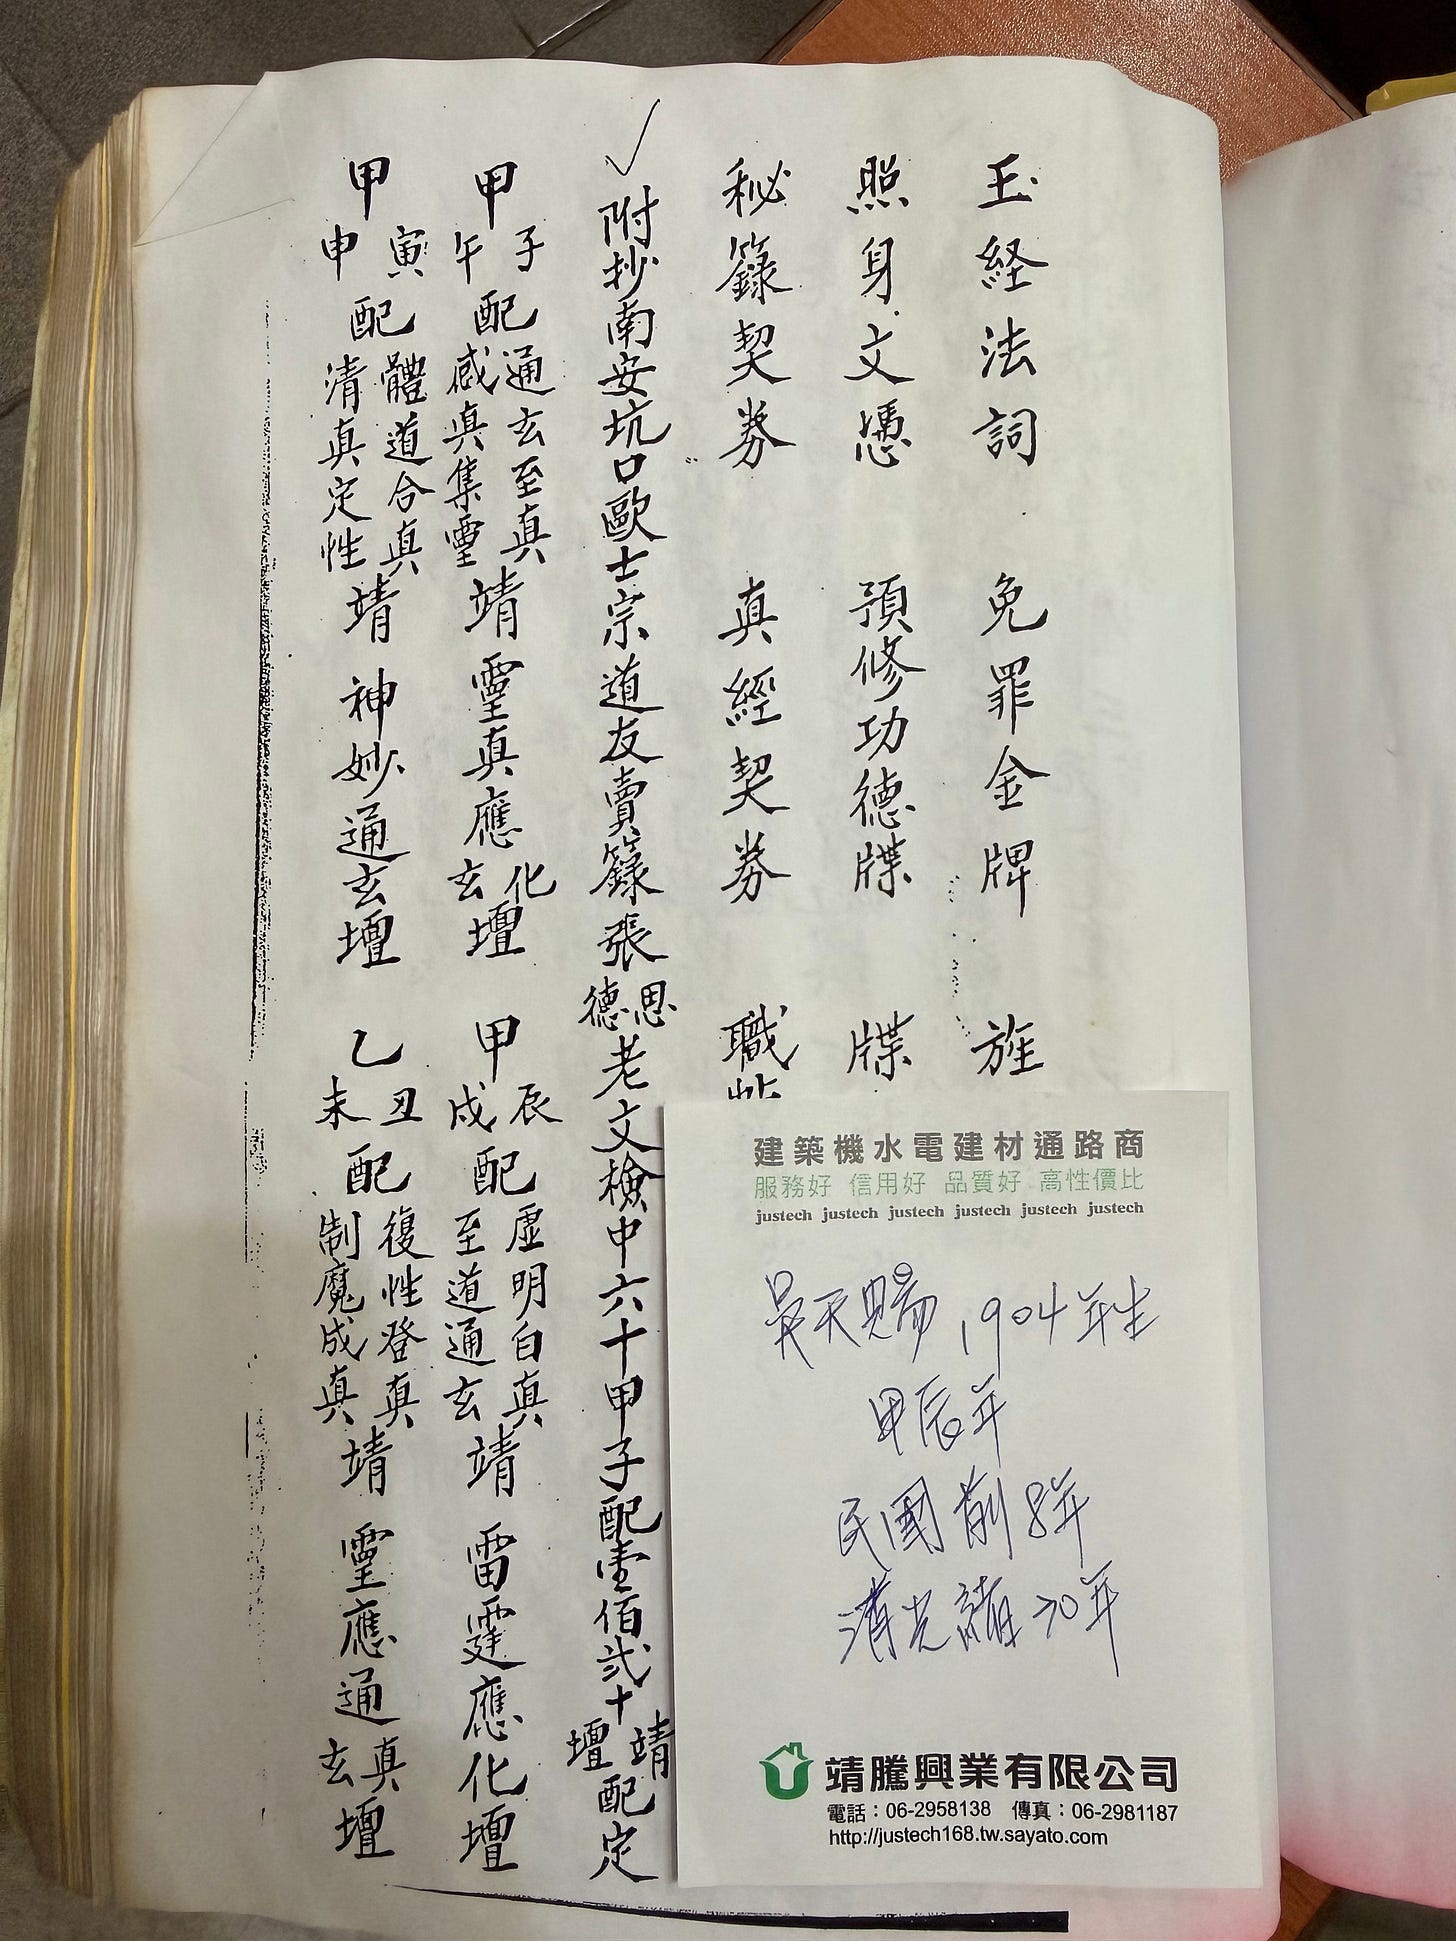 玉経法詞 免罪金牌 旌
照身文憑 預修功德牒 牒
秘籙契券 真經契券 職
附抄南安坑口歐士宗道友賣籙張思德老文檢中六十甲子配壹佰弍十靖壇配定
甲子午配通玄至真感真集靈靖 靈真應化玄壇 甲辰戌配虛明白真至道通玄靖 雷霆應化壇
甲寅申配體道合真清真定性靖 神妙通玄壇 乙丑未配復性登真制魔成真靖 靈應通真玄壇
建築機水電建材通路商
服務好 信用好 品質好 高性價比
justech justech justech justech justech justech
吳天賜，1904年生
甲辰年
民國前8年
清光緒30年
靖騰興業有限公司
電話：06-2958138 傳真：06-2981187
http://justech168.tw.sayato.com